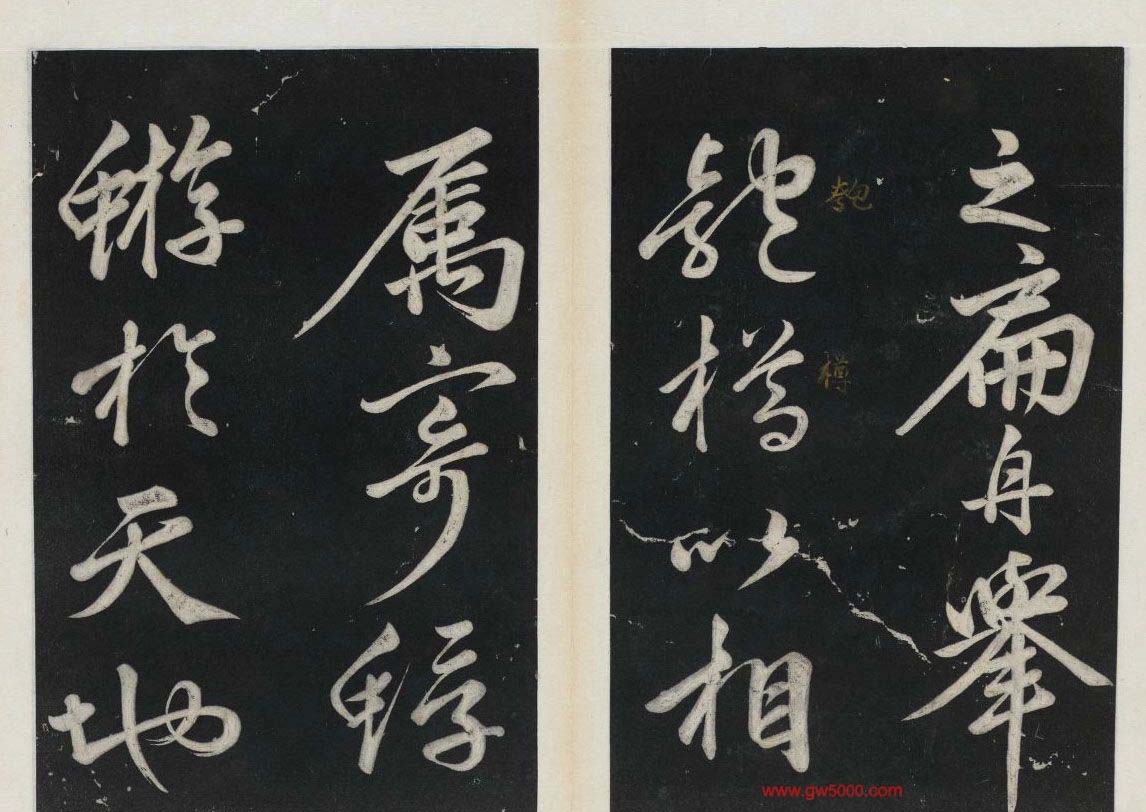 之扁舟舉
匏樽以相
匏
樽
属寄蜉
蝣於天地
www.gw5000.com